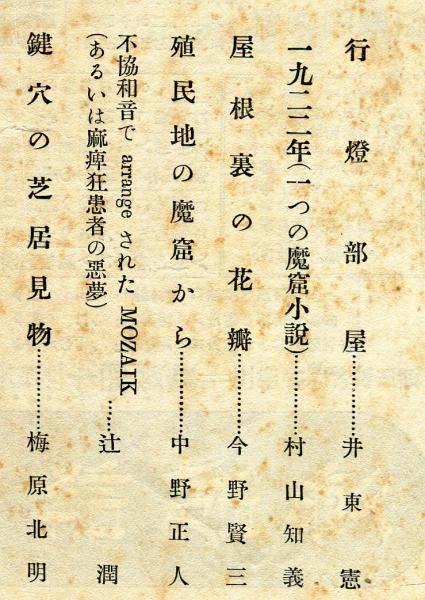 行燈部屋……………井東憲
一九二二年(一つの魔窟小說)……………村山知義
屋根裏の花瓣……………今野賢三
殖民地の魔窟から……………中野正人
不協和音で arrange された MOZAIK
(あるいは麻痺狂患者の惡夢)……辻潤
鍵穴の芝居見物……………梅原北明